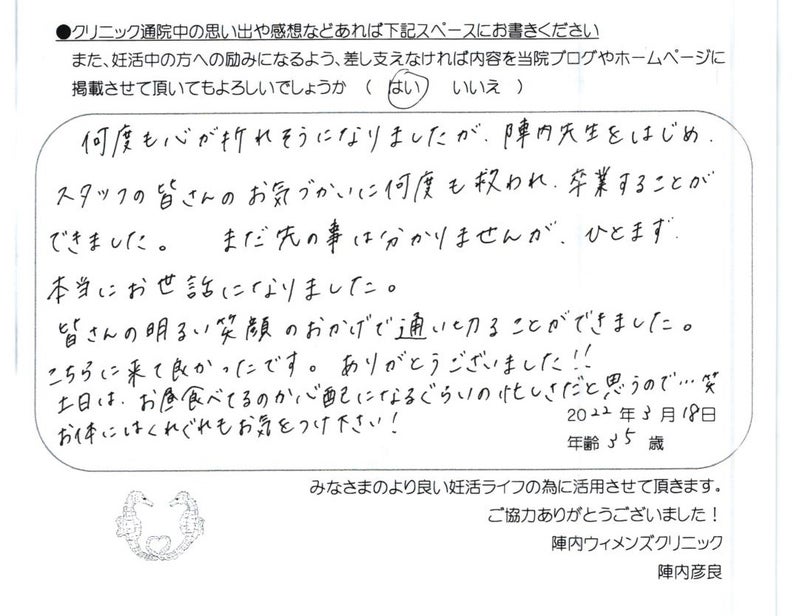 ●クリニック通院中の思い出や感想などあれば下記スペースにお書きください
また、妊活中の方への励みになるよう、差し支えなければ内容を当院ブログやホームページに
掲載させて頂いてもよろしいでしょうか （ はい　いいえ ）
何度も心が折れそうになりましたが、陣内先生をはじめ、
スタッフの皆さんのお気づかいに何度も救われ、卒業することが
できました。　まだ先の事は分かりませんが、ひとまず、
本当にお世話になりました。
皆さんの明るい笑顔のおかげで通い切ることができました。
こちらに来て良かったです。ありがとうございました!!
土日は、お昼食べてるのか心配になるぐらいの忙しさだと思うので…笑
お体にはくれぐれもお気をつけ下さい!
2022年3月18日
年齢 35 歳
みなさまのより良い妊活ライフの為に活用させて頂きます。
ご協力ありがとうございました！
陣内ウィメンズクリニック
陣内彦良